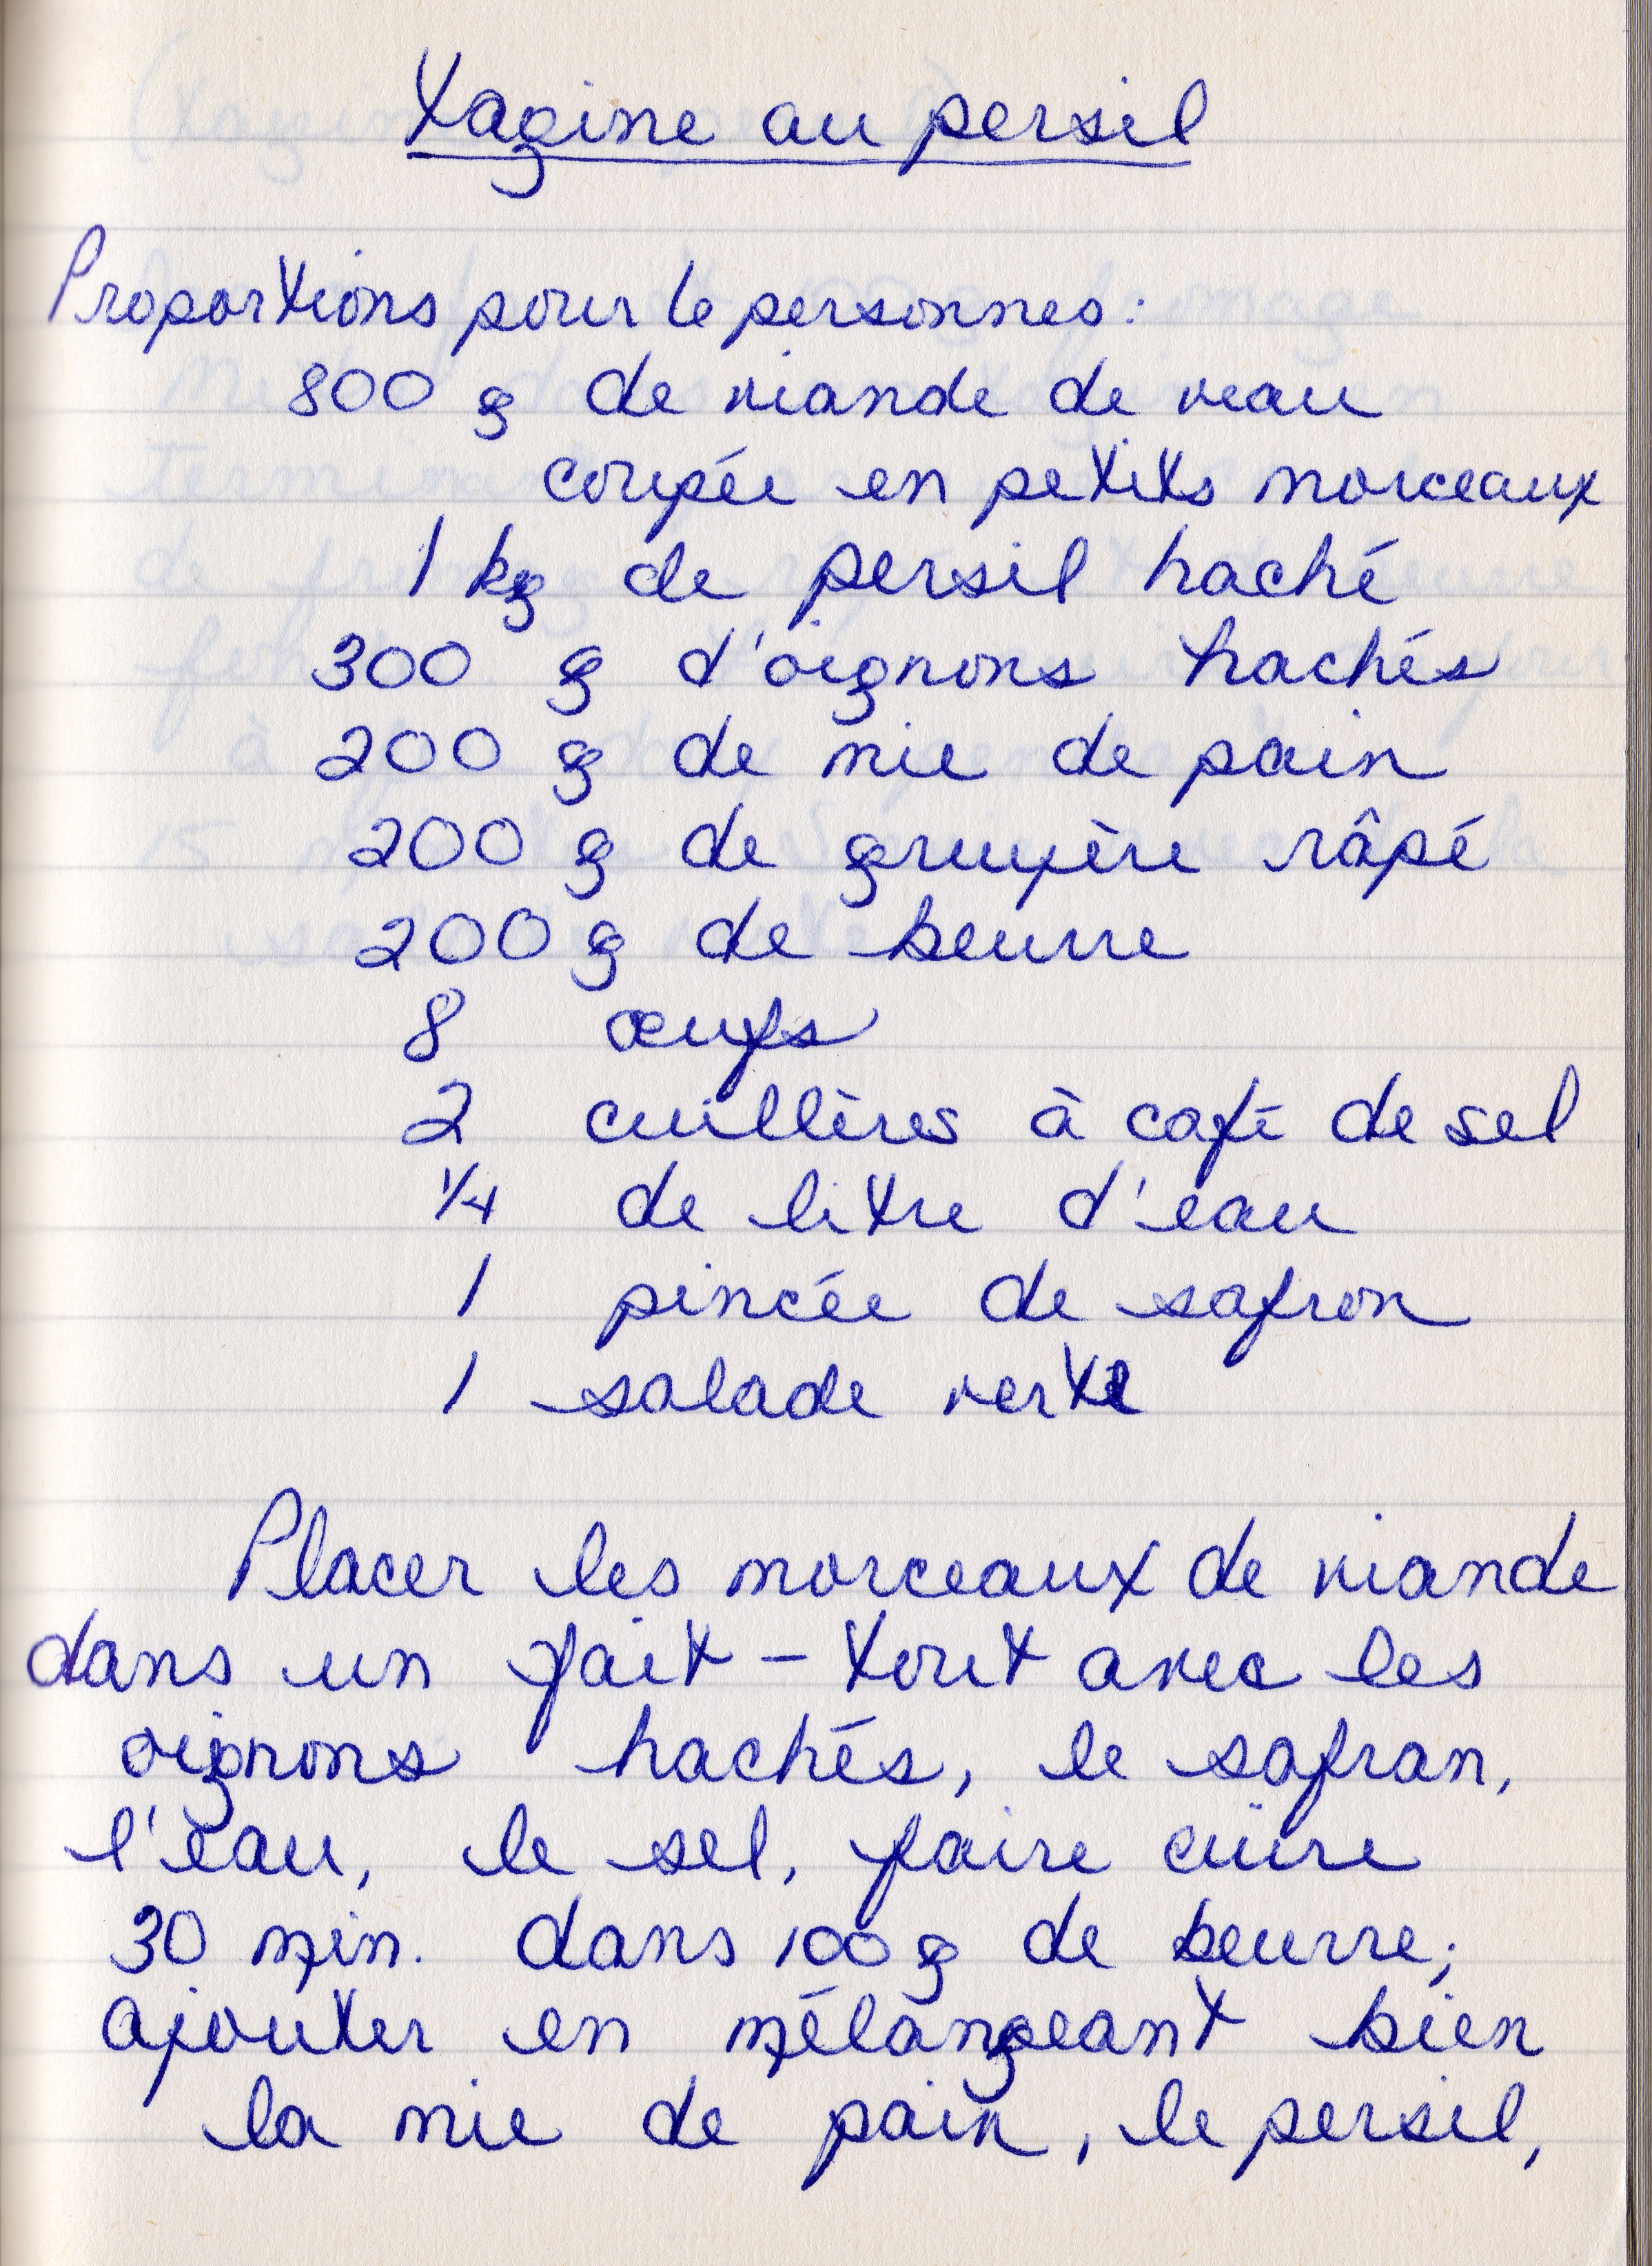 Tagine au persil
Proportions pour 6 personnes :
800 g de viande de veau
coupée en petits morceaux
1 kg de persil haché
300 g d'oignons hachés
200 g de mie de pain
200 g de gruyère râpé
200 g de beurre
8 œufs
2 cuillères à café de sel
1/4 de litre d'eau
1 pincée de safron
1 salade verte
Placer les morceaux de viande
dans un fait-tout avec les
oignons hachés, le safran,
l'eau, le sel, faire cuire
30 min. dans 100 g de beurre;
ajouter en mélangeant bien
la mie de pain, le persil,